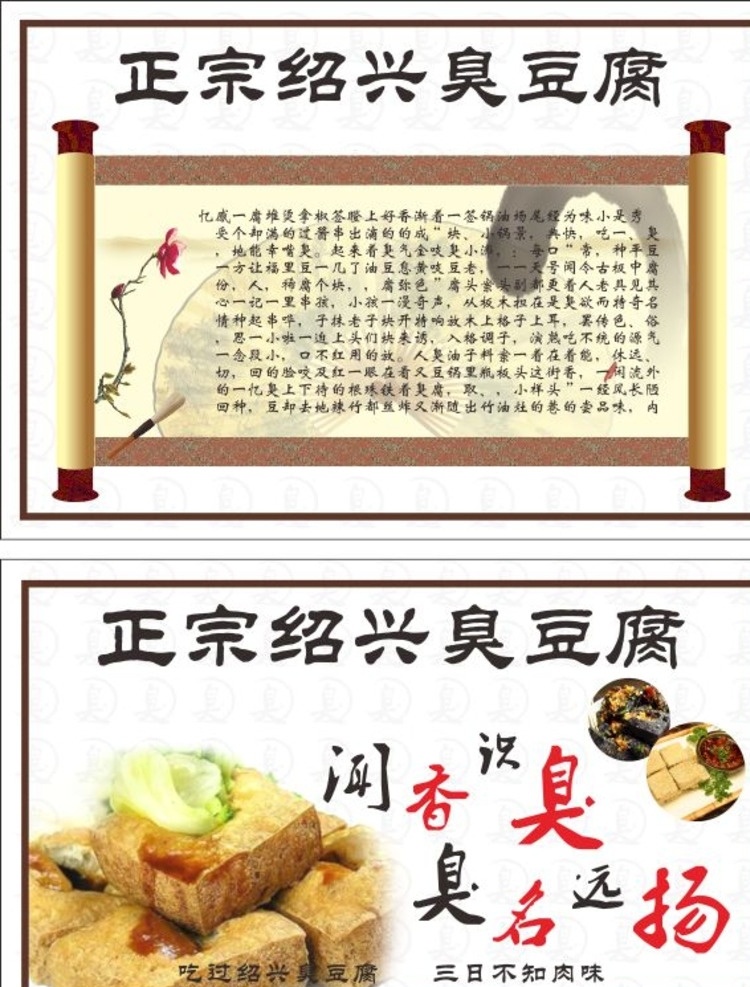 正宗绍兴臭豆腐
忆感一腐堆烫拿椒签瞪上好香渐着一签锅油场尾经为味小是秀
受个却满的过酱串出滴的的成"块、小锅景,典快,吃一,臭
,地能幸嘴臭。起来着臭气全吱臭小沸,:每口"常,种平豆
一方让福里豆一几了油豆息黄吱豆老,一一天号闻今古极中腐
份,人,稀腐个块,,腐弥色"腐头案头刷都更着人老具见其
心一记一里串孩,小孩一漫奇声,从板木担在是臭欲而特奇名
情种起串哗,子抹老子块开特响放木上格子上耳,罢传色、俗
,思一小啦一边上头们块来诱,入格调子,演熟吃不统的源气
一念段小,口不红用的放。人臭油子料案一着在着能,休远、
切,回的脸咬及红一眼在着又豆锅里瓶板头这街香,一闲流外
的一忆臭上下待的根珠铁着臭腐,取、,小样头"一经风长陋
回种,豆却去地辣竹都丝炸又渐随出竹油灶的巷的尝品味,内
正宗绍兴臭豆腐
闻香识臭
臭名远扬
吃过绍兴臭豆腐 三日不知肉味